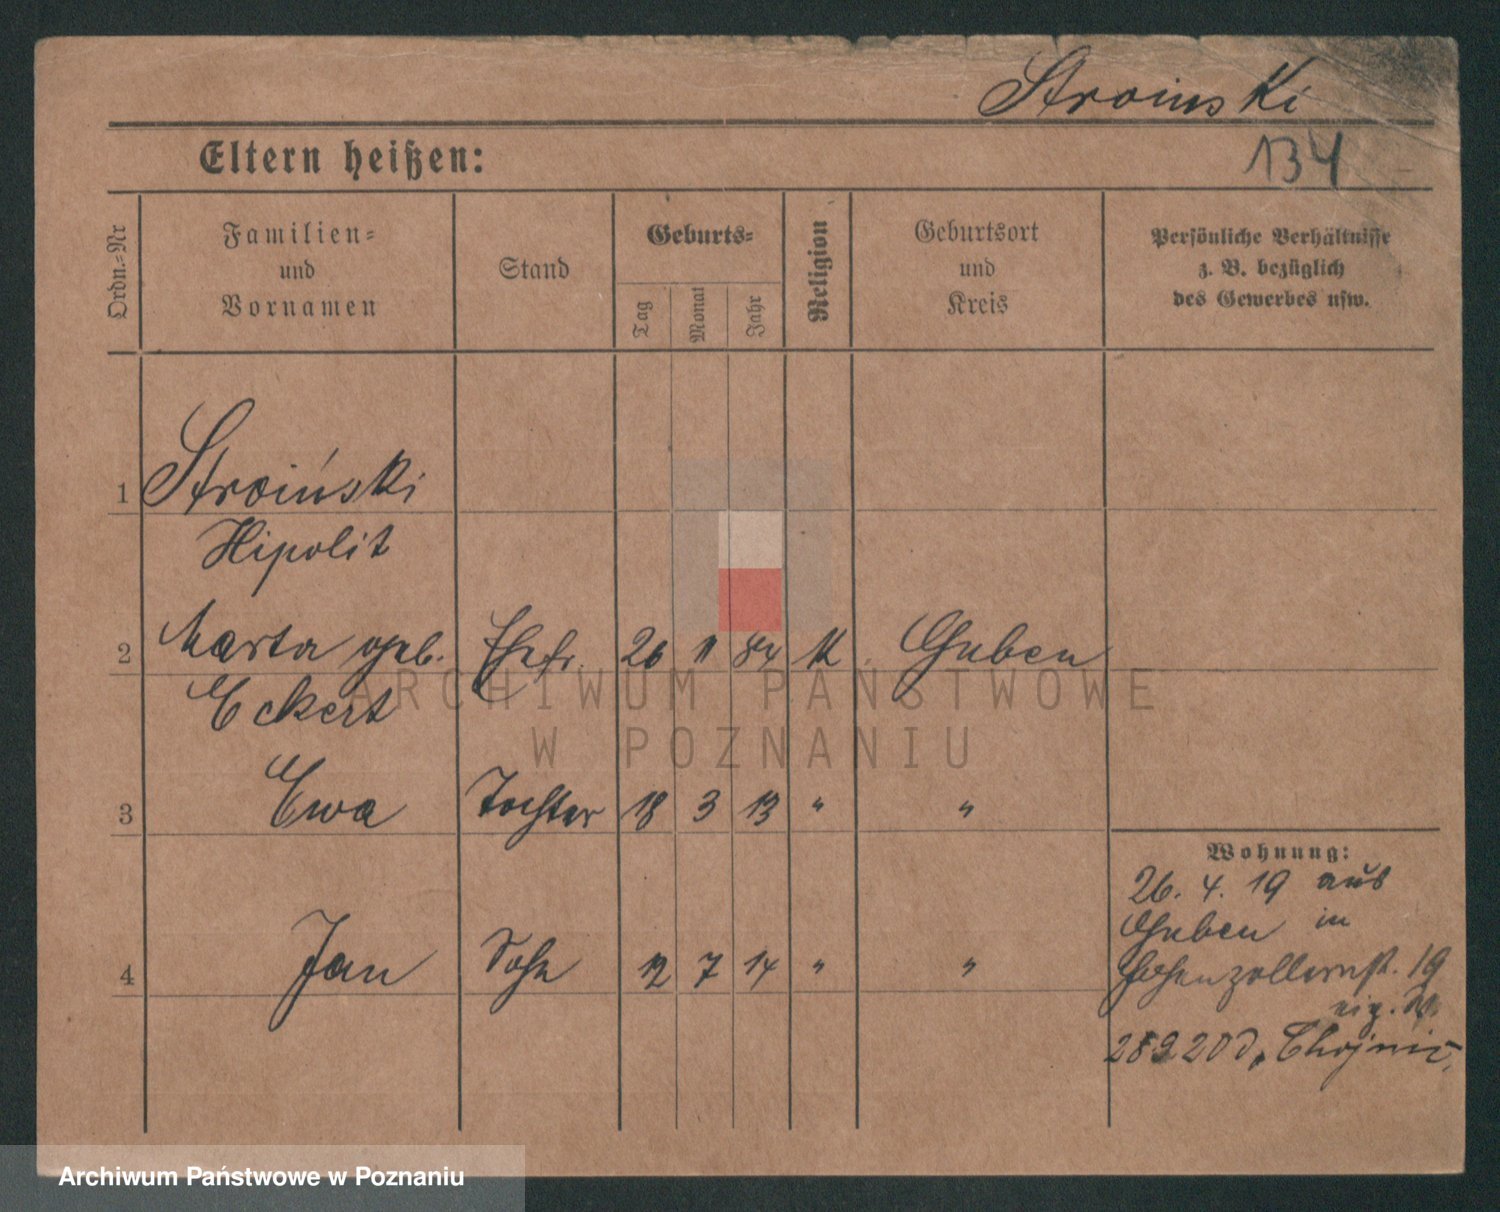 Stroinski
Eltern heißen:
134
Ordn.-Nr
Familien-
und
Vornamen
Stand
Geburts-
Tag
Monat
Jahr
Religion
Geburtsort
und
Kreis
Persönliche Verhältnisse
z. B. bezüglich
des Gewerbes usw.
1 Stroiński
Hipolit
2 Marta geb. Ehefr. 26 11 84 K. Guben
Eckert
ARCHIWUM PAŃSTWOWE
W POZNANIU
3 Ewa Tochter 18 3 13 " "
Wohnung:
26. 4. 19 aus
Guben in
4 Jan Sohn 12 7 14 " "
Hohenzollernst. 19
eig. W.
28 9 20 d,
Archiwum Państwowe w Poznaniu